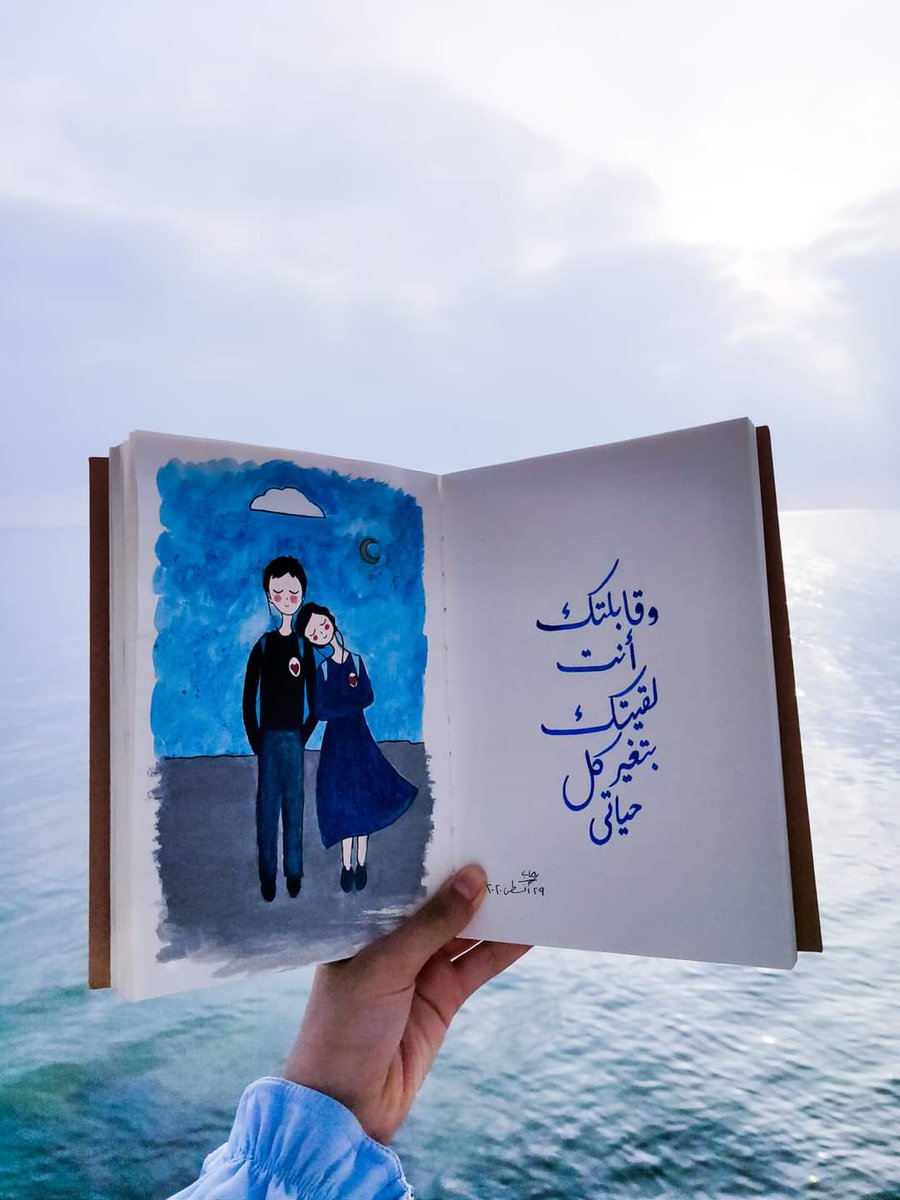 وقابلتك
أنت
لقيتك
بتغير كل
حياتي
رحاب
٢٩ أغسطس ٢٠٢٠